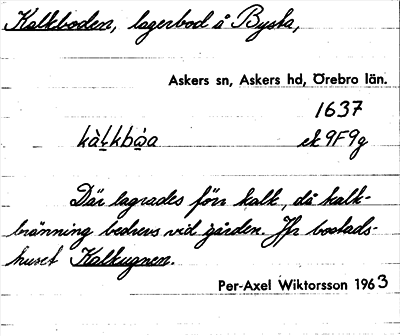 Kalkboden, lagerbod å Bysta,
Askers sn, Askers hd, Örebro län.
1637
kàlkbωa ek 9F9g
Där lagrades förr kalk, då kalk-
bränning bedrevs vid gården. Jfr bostads-
huset Kalkugnen.
Per-Axel Wiktorsson 1963